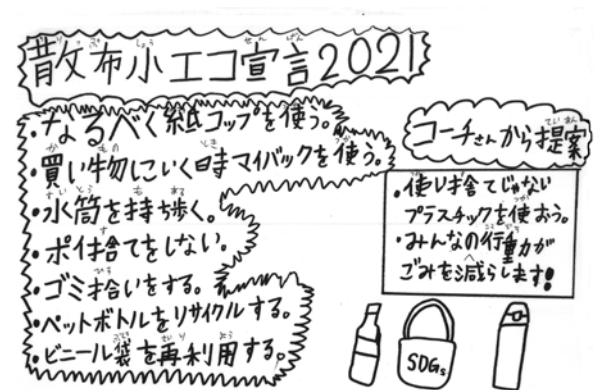 散布小エコ宣言2021
・なるべく紙コップを使う。
・買い物にいく時マイバックを使う。
・水筒を持ち歩く。
・ポイ捨てをしない。
・ゴミ拾いをする。
・ペットボトルをリサイクルする。
・ビニール袋を再利用する。
コーチさんから提案
・使い捨てじゃない
プラスチックを使おう。
・みんなの行動が
ごみを減らします!
SDGs